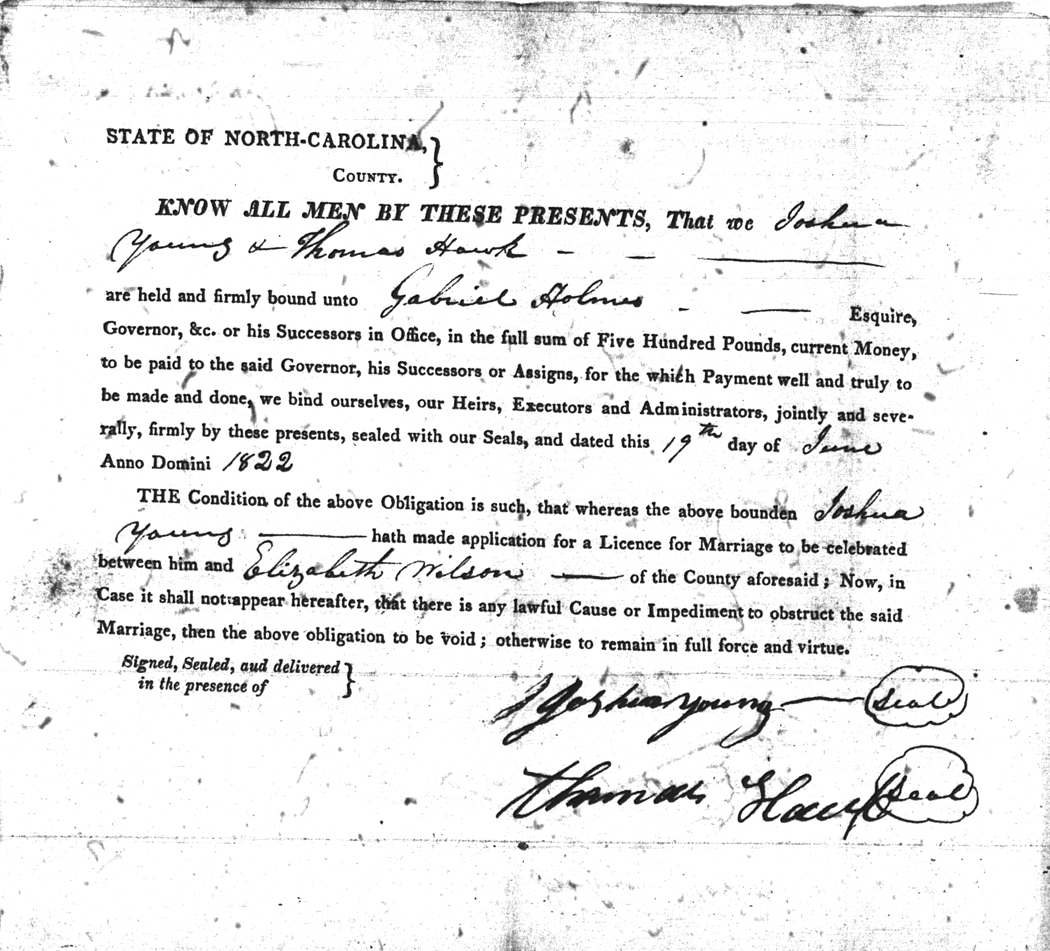 STATE OF NORTH-CAROLINA, }
COUNTY.
KNOW ALL MEN BY THESE PRESENTS, That we Joshua
Young & Thomas Hawk
are held and firmly bound unto Gabriel Holmes Esquire,
Governor, &c. or his Successors in Office, in the full sum of Five Hundred Pounds, current Money,
to be paid to the said Governor, his Successors or Assigns, for the which Payment well and truly to
be made and done, we bind ourselves, our Heirs, Executors and Administrators, jointly and seve-
rally, firmly by these presents, sealed with our Seals, and dated this 19th day of June
Anno Domini 1822
THE Condition of the above Obligation is such, that whereas the above bounden Joshua
Young hath made application for a Licence for Marriage to be celebrated
between him and Elizabeth Wilson of the County aforesaid; Now, in
Case it shall not appear hereafter, that there is any lawful Cause or Impediment to obstruct the said
Marriage, then the above obligation to be void; otherwise to remain in full force and virtue.
Signed, Sealed, aud delivered }
in the presence of
Joshua Young Seal
Thomas Seal